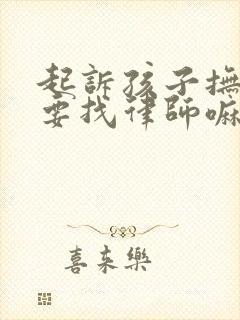 起訴孩子撫
要找律師嘛
喜來樂